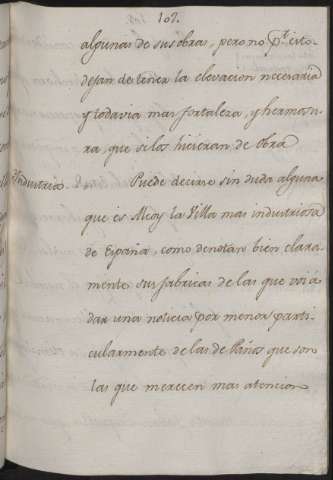 107.
algunas de sus obra, pero no pr. esto
dejan de tener la elevacion necesaria
y todavia mas fortaleza, y hermosu-
ra, que si los hicieran de obra
Industria. Puede decirse sin duda alguna
que es Alcoy la Villa mas industriosa
de España, como denotan bien clara-
mente sus fabricas de las que voi á
dar una noticia por menor parti-
cularmente de las de Paños que son
las que merecen mas atencion